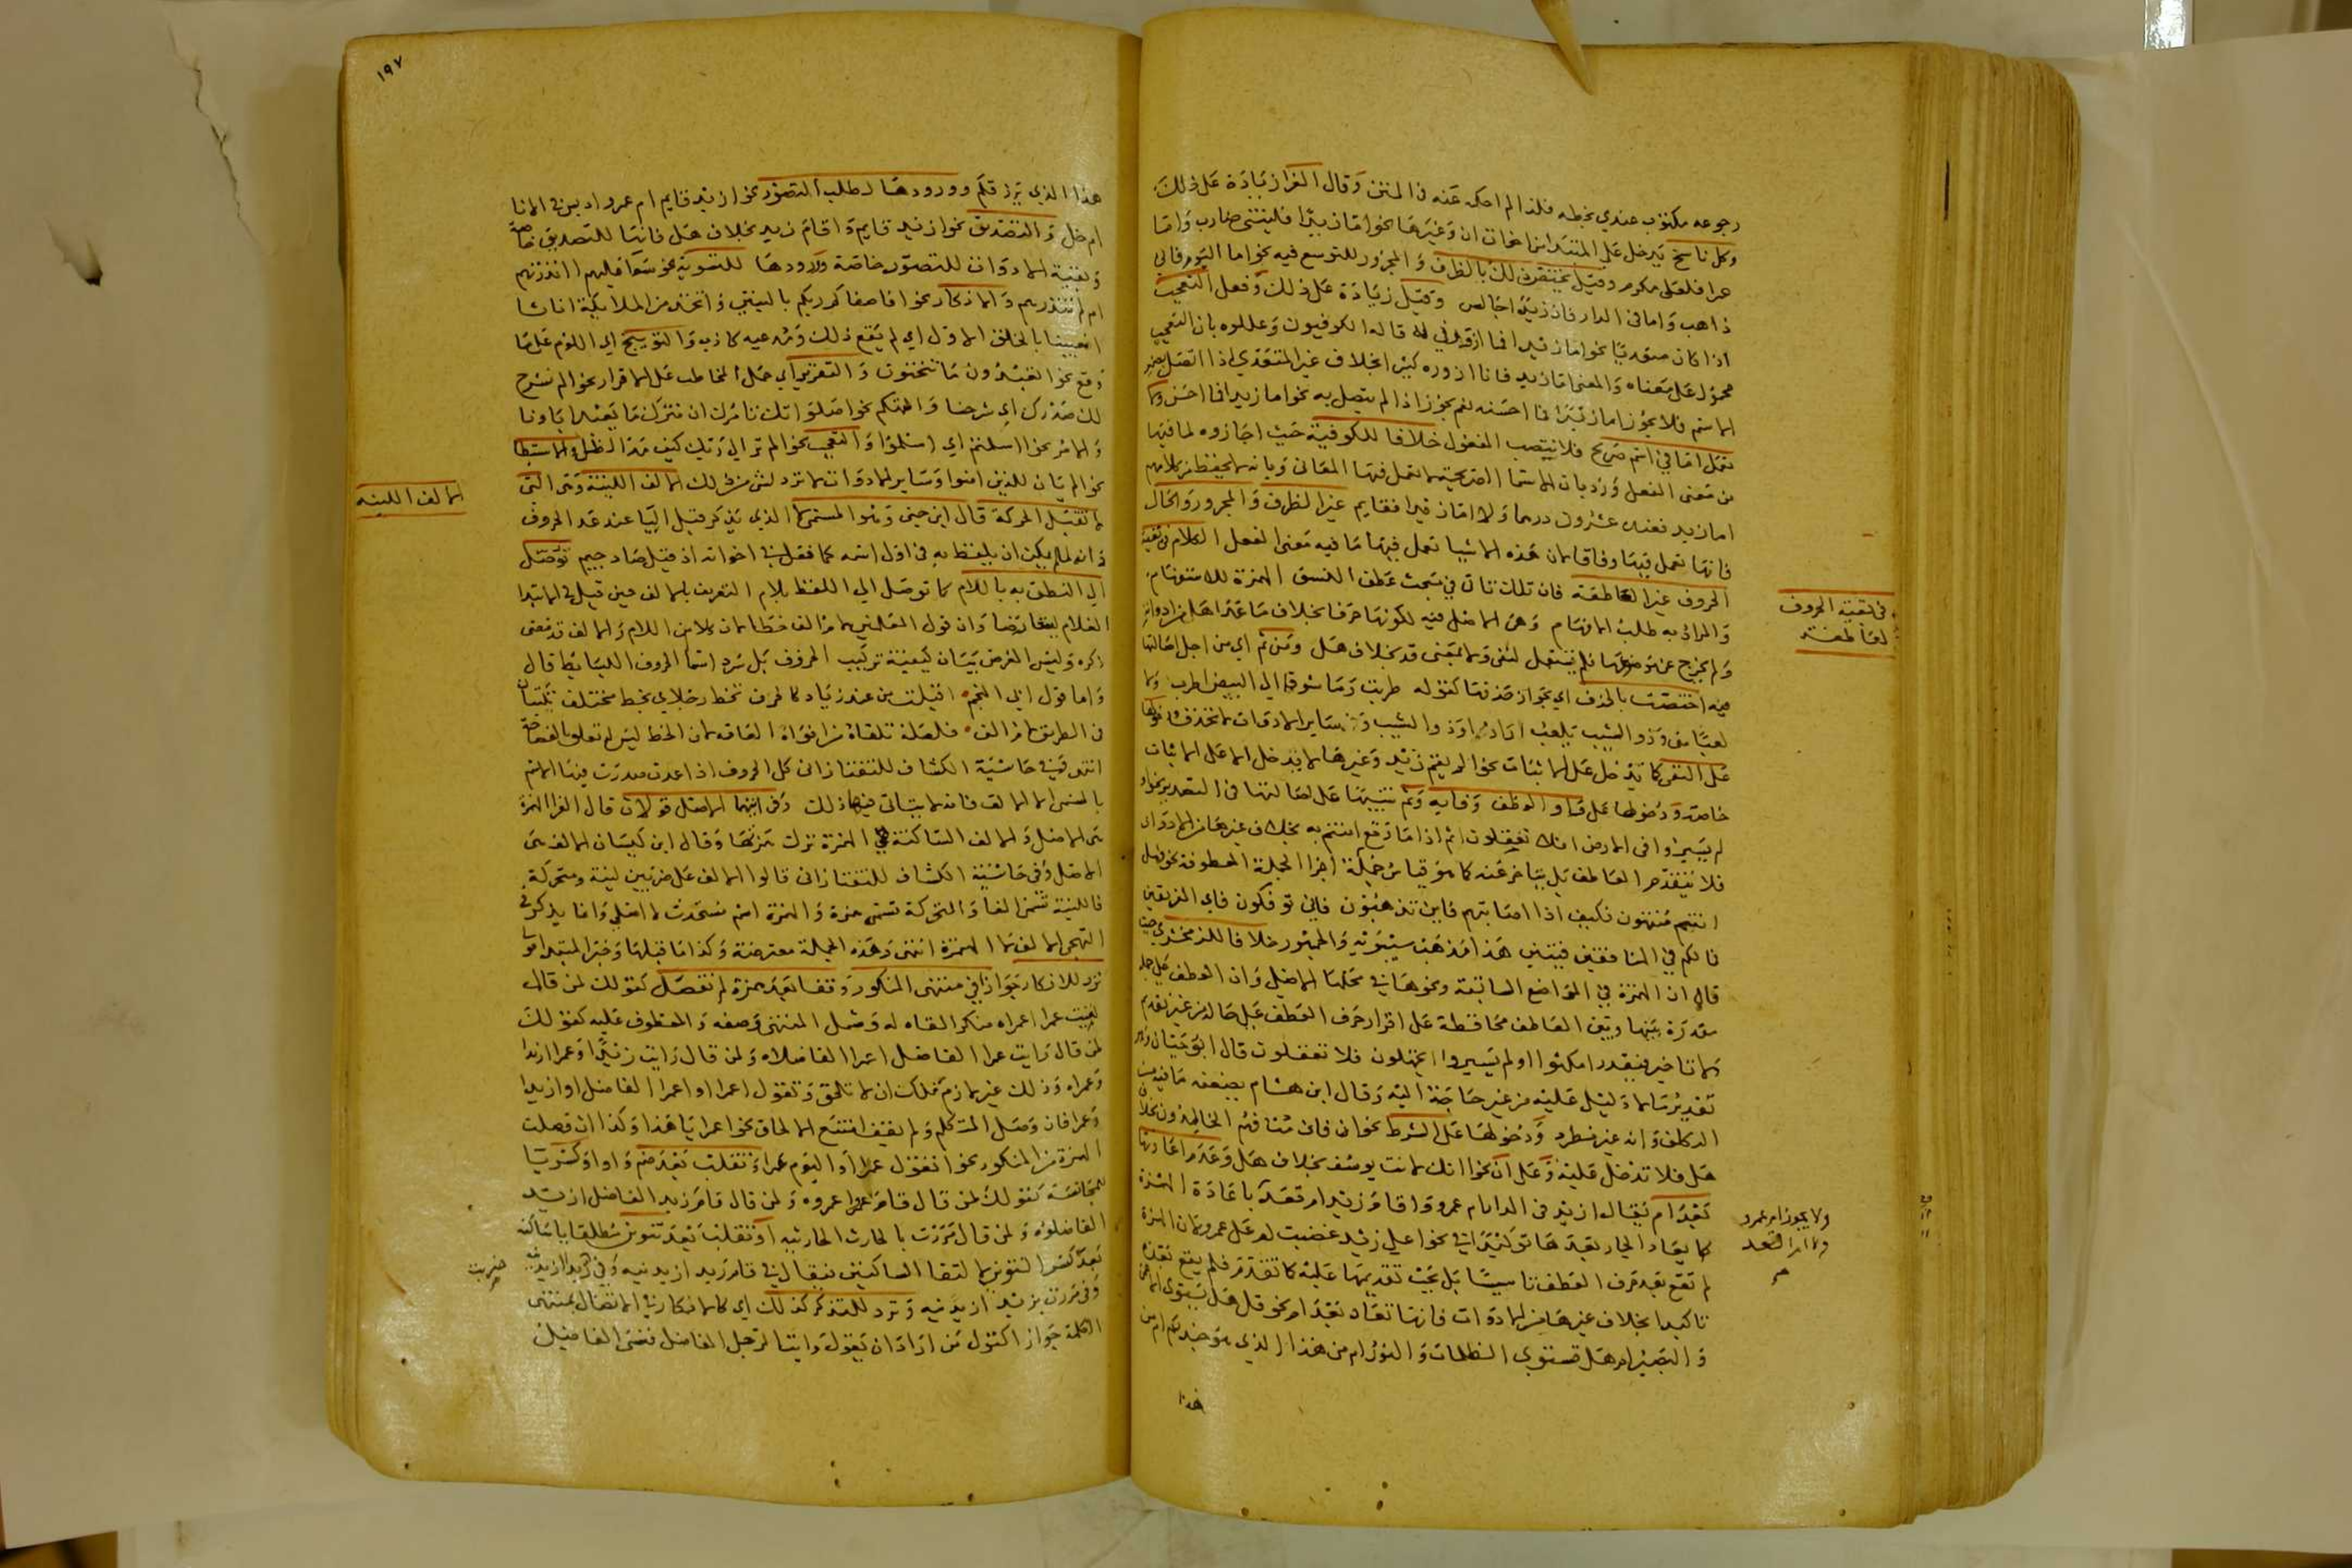 رجوعه مكتوب عندي بخطه فلذا لم احكه عنه في المتن وقال الفرا زيادة على ذلك
وكل ناسخ يدخل على المبتدا من اخوات ان وغيرها نحو اما زيدا فليتني ضارب واما
عمرا فلعلي مكرم وقيل يختص ذلك بالظرف والمجرور للتوسع فيه نحو اما اليوم فاني
ذاهب واما في الدار فان زيدا جالس وقيل زيادة على ذلك وفعل التعجب
اذا كان متعديا نحو اما زيدا فما اضربني له قاله الكوفيون وعللوه بان التعجب
محمول على معناه والمعنى اما زيد فانا ازوره كثيرا بخلاف غير المتعدي اذا اتصل بضمير
الاسم فلا يجوز اما زيدا فما احسنه نعم يجوز اذا لم يتصل به نحو اما زيدا فما احسن ولا
تعمل اما في اسم صريح فلا ينتصب المفعول خلافا للكوفية حيث اجازوه لما فيها
من معنى الفعل ورد بان الاسما الصريحة لا تعمل فيها المعاني وبانه لم يحفظ من كلامهم
اما زيد فعنده عشرون درهما ولا اما زيدا فقايم غير الظرف والمجرور والحال
فانها تعمل فيها وفاقا لان هذه الاشيا تعمل فيها ما فيه معنى الفعل الكلام في بقية
الحروف غير العاطفة فان تلك تاتي في مبحث عطف النسق الهمزة للاستفهام
والمراد به طلب الافهام وهي الاصل فيه لكونها حرفا بخلاف ما عدا هل من ادواته
ولم يخرج عن موضوعها فلم تستعمل لنفي ولا بمعنى قد بخلاف هل ومن ثم اي من اجل اصالتها
فيه اختصت بالحذف اي بجواز حذفها كقوله طربت وما شوقا الى البيض اطرب ولا
لعبا مني وذو الشيب يلعب اراد اوذو الشيب وساير الادوات لا تحذف ودخولها
على النفي كما تدخل على الاثبات نحو الم يقم زيد وغيرها لا يدخل الا على الاثبات
خاصة ودخولها على واو العطف وفايه وثم تنبيها على اصالتها في التصدير نحو اولم
لم يسيروا في الارض افلا تعقلون اثم اذا ما وقع امنتم به بخلاف غيرها من الادوات
فلا يتقدم العاطف بل يتاخر عنه كما هو قياس جملة اجزا الجملة المعطوفة نحو فهل
انتم منتهون فكيف اذا اصابتهم فاين تذهبون فاني توفكون فاي الفريقين
فما لكم في المنافقين فيتين هذا مذهب سيبويه والجمهور خلافا للزمخشري حيث
قال ان الهمزة في المواضع السابقة ونحوها في محلها الاصلي وان العطف على جملة
مقدرة بينها وبين العاطف محافظة على اقرار حرف العطف على حاله من غير تقديم
ولا تاخير فيقدر امكثوا اولم يسيروا اتجهلون فلا تعقلون قال ابو حيان وهو
تقدير ما لا دليل عليه من غير حاجة اليه وقال ابن هشام يضعفه ما فيه من
التكلف وانه غير مطرد ودخولها على الشرط نحو افان مت فهم الخالدون بخلاف
هل فلا تدخل عليه وعلى ان نحو اانك لانت يوسف بخلاف هل وعدم اعادتها
بعد ام فيقال ازيد في الدار ام عمرو واقام زيد ام قعد باعادة الهمزة
كما يعاد الجار بعدها توكيدا في نحو اعلى زيد غضبت ام على عمرو لان الهمزة
لم تقع بعد حرف العطف تاسيسا بل يجب تقديمها عليه كما تقدم فلم يقع بعده
تاكيدا بخلاف غيرها من الادوات فانها تعاد بعد ام نحو قل هل يستوي الاعمى
والبصير ام هل تستوي الظلمات والنور ام من هذا الذي هو جند لكم ام من
هذا
في بقية الحروف
العاطفة
ولا يجوز ام عمرو
ولا ام اقعد
صح
١٩٧
هذا الذي يرزقكم وورودها لطلب التصور نحو ازيد قايم ام عمرو ادبس في الانا
ام خل والتصديق نحو ازيد قايم واقام زيد بخلاف هل فانها للتصديق خاصة
وبقية الادوات للتصور خاصة وورودها للتسوية نحو سوا عليهم اانذرتهم
ام لم تنذرهم والانكار نحو افاصفاكم ربكم بالبنين واتخذ من الملايكة اناثا
افعيينا بالخلق الاول اي لم يقع ذلك ومدعيه كاذب والتوبيخ اي اللوم على ما
وقع نحو اتعبدون ما تنحتون والتقرير اي حمل المخاطب على الاقرار نحو الم نشرح
لك صدرك اي شرحنا والتهكم نحو اصلواتك تامرك ان نترك ما يعبد اباونا
والامر نحو ااسلمتم اي اسلموا والتعجب نحو الم تر الى ربك كيف مد الظل والاستبطا
نحو الم يان للذين امنوا وساير الادوات لا ترد لشي من ذلك الالف اللينة وهي التي
لا تقبل الحركة قال ابن جني وهو المسمى لا الذي يذكر قبل اليا عند عد الحروف
وانه لما لم يمكن ان يلفظ به في اول اسمه كما فعل في اخواته اذ قيل صاد جيم توصل
الى النطق به باللام كما توصل الى اللفظ بلام التعريف بالالف حين قيل في الابتدا
الغلام ليتقارضا وان قول المعلمين لام الف خطا لان كلا من اللام والالف قد مضى
ذكره وليس الغرض بيان كيفية تركيب الحروف بل سرد اسما الحروف البسايط قال
واما قول ابي النجم اقبلت من عند زياد كالخرف تخط رجلاي بخط مختلف تكتبان
في الطريق لام الف فلعله تلقاه من افواه العامة لان الخط ليس له تعلق بالفصاحة
انتهى وفي حاشية الكشاف للتفتازاني كل الحروف اذا عدت صدرت فيها الاسم
بالمسمى الا الالف فانه لا يتاتى فيها ذلك وفي ايهما الاصل قولان قال الفرا الهمزة
هي الاصل والالف الساكنة هي الهمزة تركت همزتها وقال ابن كيسان الالف هي
الاصل وفي حاشية الكشاف للتفتازاني قالوا الالف على ضربين لينة ومتحركة
فاللينة تسمى الفا والمتحركة تسمى همزة والهمزة اسم مستحدث لا اصلي وانما يذكر في
التهجي الالف لا الهمزة انتهى وهذه الجملة معترضة وكذا ما قبلها وخبر المبتدا قولنا
ترد للانكار جوازا في منتهى المنكور وقفا بعد همزة لم تفصل كقولك لمن قال
لقيت عمرا اعمراه منكرا لقاه له وشمل المنتهى وصفه والمعطوف عليه كقولك
لمن قال رايت عمرا الفاضل اعمرا الفاضلاه ولمن قال رايت زيدا وعمرا ازيدا
وعمراه وذلك غير لازم فلك ان لا تلحق وتقول اعمرا او اعمرا الفاضل اوازيدا
وعمرا فان وصل المتكلم ولم يقف امتنع الالحاق نحو اعمرا يا هذا وكذا ان فصلت
الهمزة من المنكور نحو اتقول عمرا او اليوم عمرا وتنقلب بعد ضم واوا وكسر يا
للمجانسة كقولك لمن قال قام عمرو اعمروه ولمن قال قام زيد الفاضل ازيد
الفاضلوه ولمن قال مررت بالحارث الحارثيه او تنقلب بعد تنوين مطلقا يا ساكنة
بعد كسر التنوين لالتقا الساكنين فيقال في قام زيد ازيدنيه وفي ضربت زيدا ازيدنيه
وفي مررت بزيد ازيدنيه وترد للتذكر كذلك اي كالانكار في الاتصال بمنتهى
الكلمة جوازا كقول من اراد ان يقول رايت الرجل الفاضل فنسي الفاضل
الالف اللينه
ضربت
صح